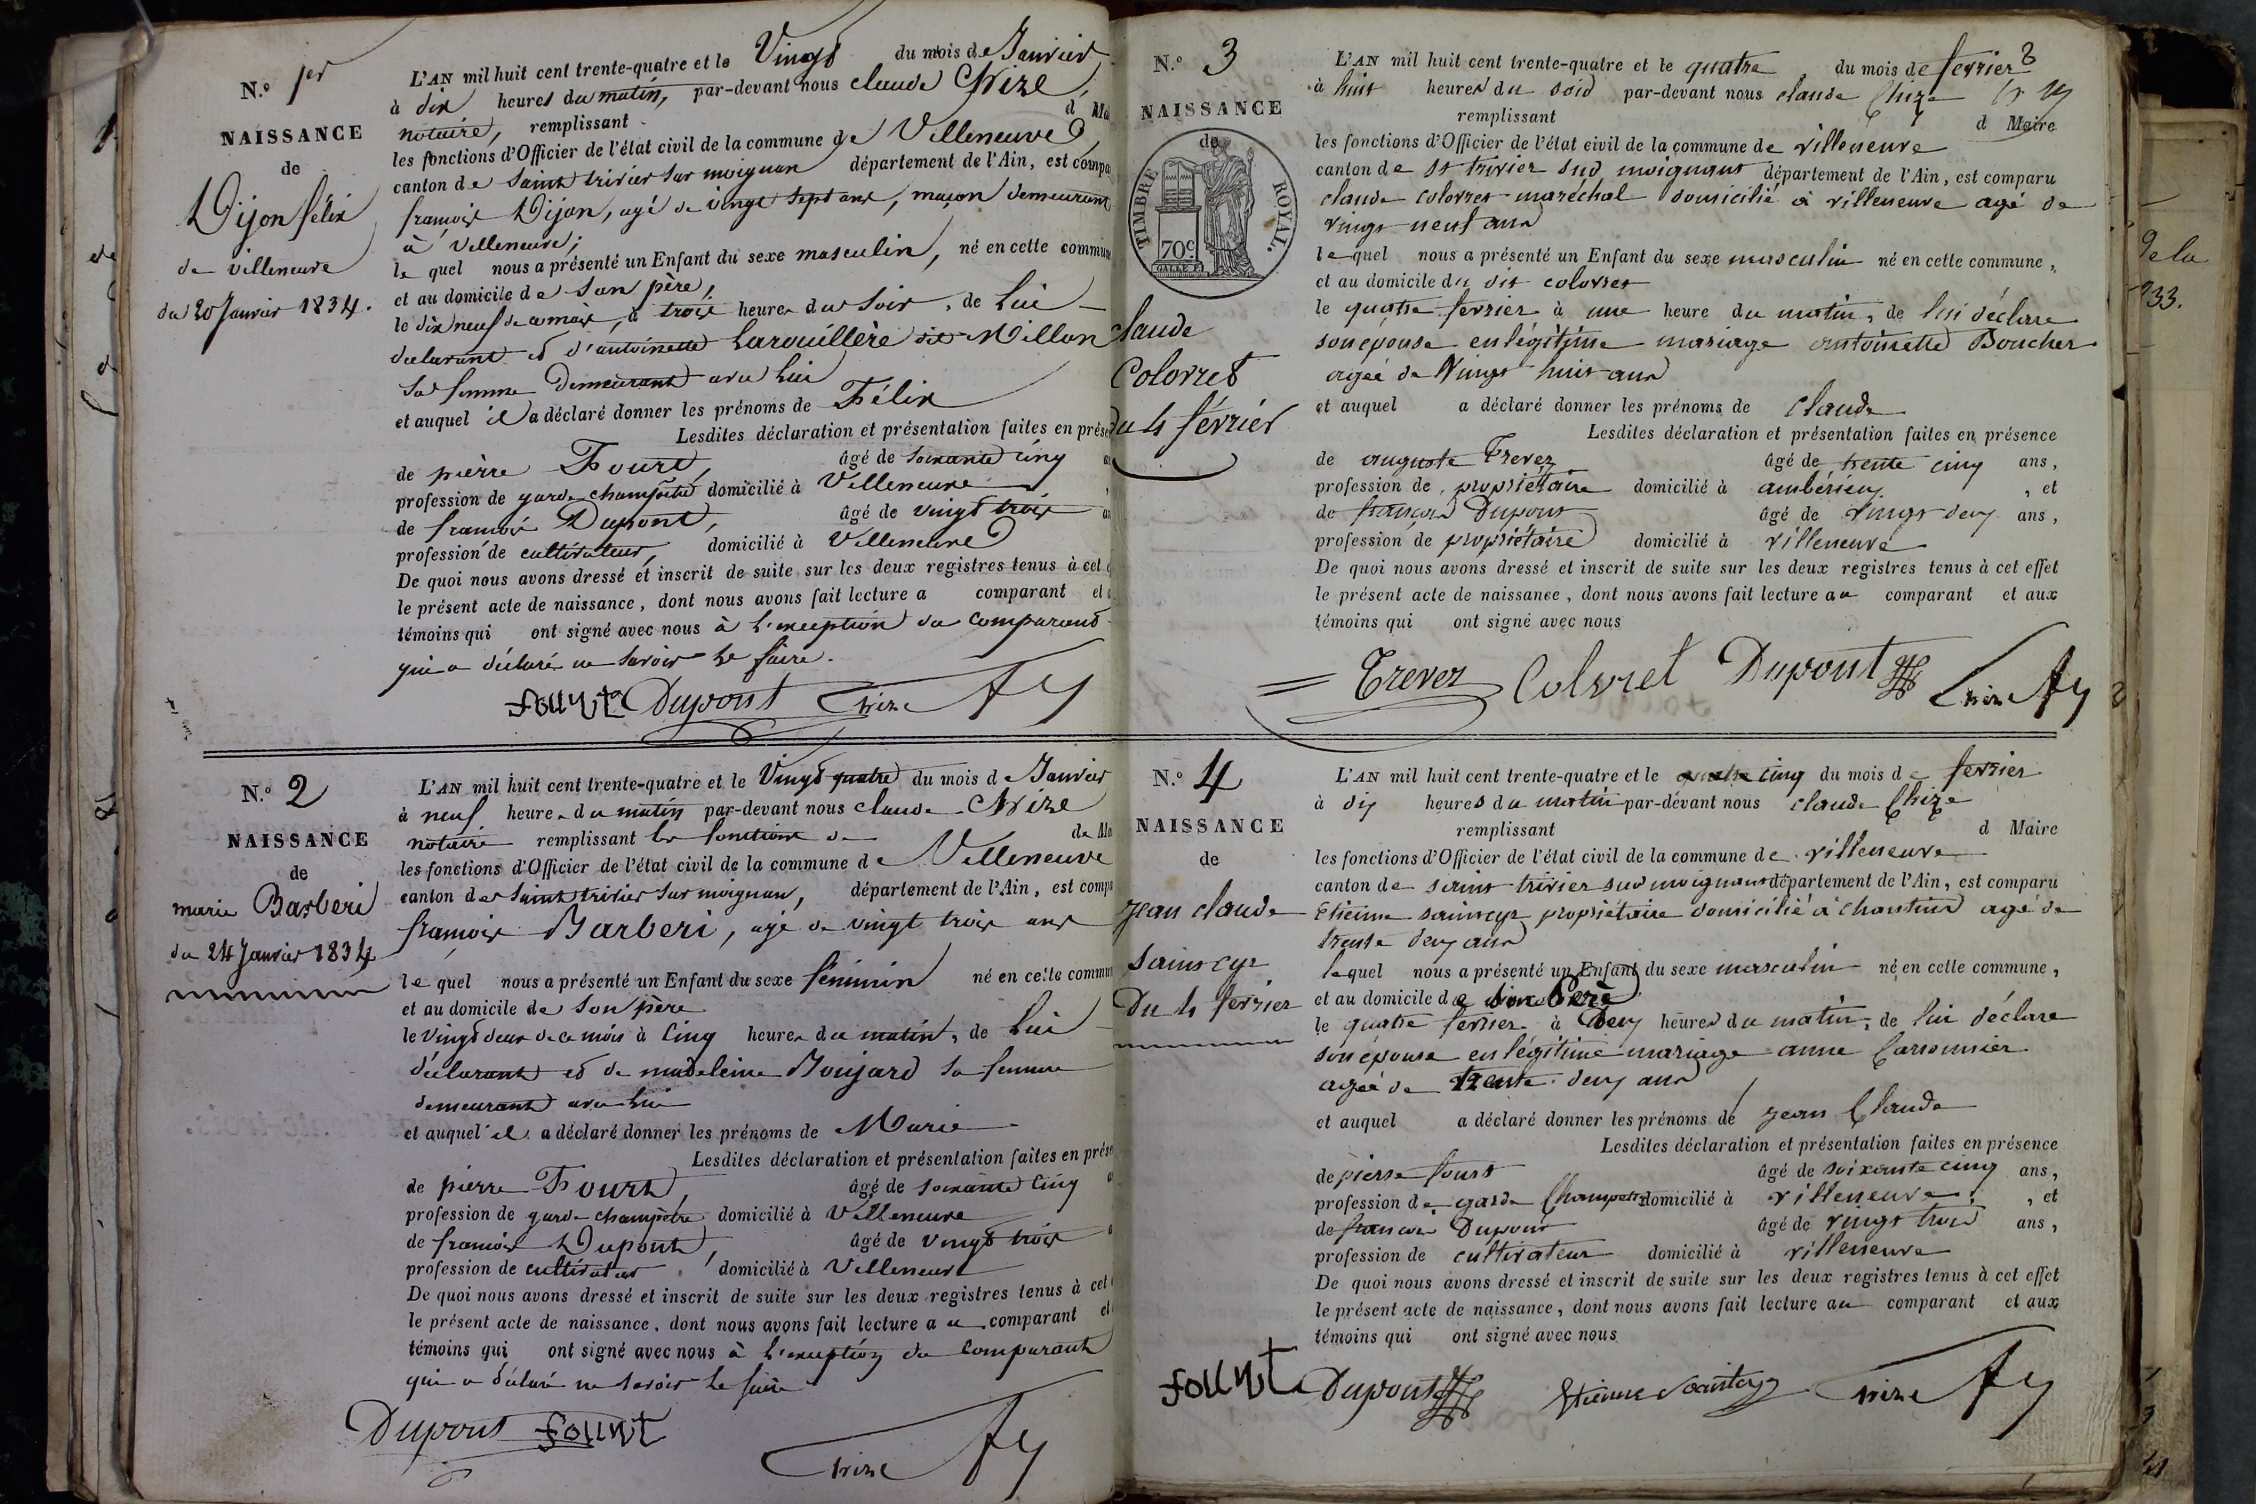 N.º 1er
NAISSANCE
de
Dijon félix
de villeneuve
du 20 Janvier 1834.
L'AN mil huit cent trente-quatre et le Vingt du mois de Janvier
à dix heures du matin, par-devant nous claude Chize,
notaire, remplissant d Ma
les fonctions d'Officier de l'état civil de la commune de Villeneuve,
canton de saint trivier sur moignan département de l'Ain, est compa
françois Dijon, agé de vingt sept ans, maçon demeurant
à Villeneuve,
le quel nous a présenté un Enfant du sexe masculin, né en cette commune
et au domicile de son père,
le dix neuf de ce mois, à trois heures du soir, de Lui
déclarant et d'antoinette Larouillère dit Millon
sa femme demeurant avec Lui
et auquel il a déclaré donner les prénoms de Félix
Lesdites déclaration et présentation faites en prése
de pièrre Fourt, âgé de soixante cinq an
profession de garde champêtre domicilié à Villeneuve
de françois Dupont, âgé de vingt trois an
profession de cultivateur, domicilié à Villeneuve
De quoi nous avons dressé et inscrit de suite sur les deux registres tenus à cet e
le présent acte de naissance, dont nous avons fait lecture a comparant et a
témoins qui ont signé avec nous à L'exception du comparant
qui a déclaré ne savoir Le faire.
fount Dupont Chize
N.º 2
NAISSANCE
de
marie Barberi
du 24 Janvier 1834
L'AN mil huit cent trente-quatre et le Vingt quatre du mois de Janvier
à neuf heures du matin par-devant nous claude Chize
notaire remplissant les fonctions de de Ma
les fonctions d'Officier de l'état civil de la commune de Villeneuve
canton de saint trivier sur moignan, département de l'Ain, est compa
françois Barberi, agé de vingt trois ans
le quel nous a présenté un Enfant du sexe féminin né en cette commun
et au domicile de son père
le vingt deux de ce mois à Cinq heures du matin, de Lui
déclarant et de madeleine Boujard sa femme
demeurant avec Lui
et auquel il a déclaré donner les prénoms de Marie
Lesdites déclaration et présentation faites en prése
de pierre Fourt, âgé de soixante Cinq a
profession de garde champêtre domicilié à Villeneuve
de françois Dupont, âgé de vingt trois a
profession de cultivateur domicilié à Villeneuve
De quoi nous avons dressé et inscrit de suite sur les deux registres tenus à cet
le présent acte de naissance, dont nous avons fait lecture a u comparant et
témoins qui ont signé avec nous à L'exception du Comparant
qui a déclaré ne savoir Le faire
Dupont fount
Chize
N.º 3
NAISSANCE
de
TIMBRE ROYAL.
70c
claude
Colovret
du 4 février
L'AN mil huit cent trente-quatre et le quatre du mois de fevrier
à huit heures du soir par-devant nous claude Chize
remplissant d Maire
les fonctions d'Officier de l'état civil de la commune de villeneuve
canton de st trivier sur moignans département de l'Ain, est comparu
claude colovret maréchal domicilié à villeneuve agé de
vingt neuf ans
le quel nous a présenté un Enfant du sexe masculin né en cette commune,
et au domicile du dit colovret
le quatre fevrier à une heure du matin, de lui déclare
son épouse en légitime mariage antoinette Boucher
agée de Vingt huit ans
et auquel a déclaré donner les prénoms de claude
Lesdites déclaration et présentation faites en présence
de auguste Trever âgé de trente cinq ans,
profession de propriétaire domicilié à ambérieu, et
de françois Dupont âgé de vingt deux ans,
profession de propriétaire domicilié à villeneuve
De quoi nous avons dressé et inscrit de suite sur les deux registres tenus à cet effet
le présent acte de naissance, dont nous avons fait lecture au comparant et aux
témoins qui ont signé avec nous
Trever Colvret Dupont Chize
N.º 4
NAISSANCE
de
jean claude
saintcyr
Du 4 fevrier
L'AN mil huit cent trente-quatre et le quatre cinq du mois de fevrier
à dix heures du matin par-devant nous claude Chize
remplissant d Maire
les fonctions d'Officier de l'état civil de la commune de villeneuve
canton de saint trivier sur moignans département de l'Ain, est comparu
Etienne saintcyr propriétaire domicilié à chantins agé de
trente deux ans
lequel nous a présenté un Enfant du sexe masculin né en cette commune,
et au domicile de son Père
le quatre fevrier à Deux heures du matin, de lui déclare
son épouse en légitime mariage anne Carronnier
agée de trente deux ans
et auquel a déclaré donner les prénoms de jean Claude
Lesdites déclaration et présentation faites en présence
de pierre fourt âgé de soixante cinq ans,
profession de garde Champetre domicilié à villeneuve, et
de francois Dupont âgé de vingt trois ans,
profession de cultivateur domicilié à villeneuve
De quoi nous avons dressé et inscrit de suite sur les deux registres tenus à cet effet
le présent acte de naissance, dont nous avons fait lecture au comparant et aux
témoins qui ont signé avec nous
fount Dupont Etienne Saintcyr Chize
de la
233.